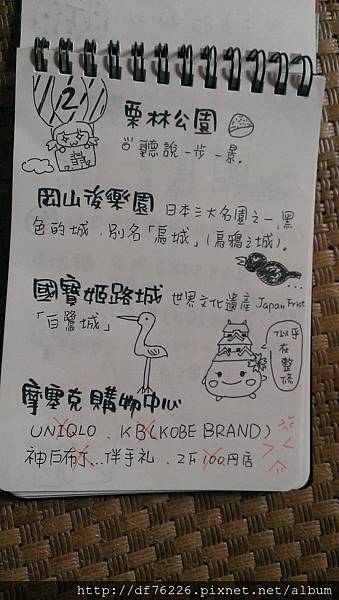 2
栗林公園
聽說一步一景。
岡山後樂園 日本三大名園之一,黑
色的城.別名「烏城」(烏鴉之城)。
國寶姬路城 世界文化遺產 Japan Frist
「白鷺城」
似乎
在
整修
摩塞克購物中心
UNIQLO、KB(KOBE BRAND)
神戶布丁...伴手礼、2F 100円店
http://df76226.pixnet.net/album